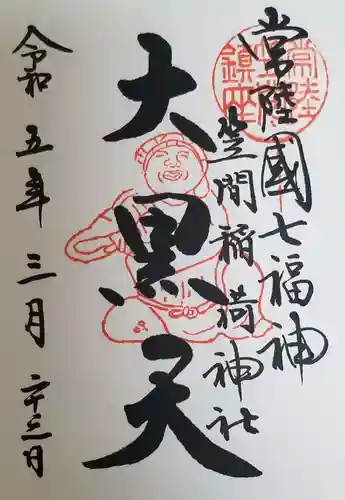 常陸國七福神
笠間稲荷神社
大黒天
令和五年三月二十三日